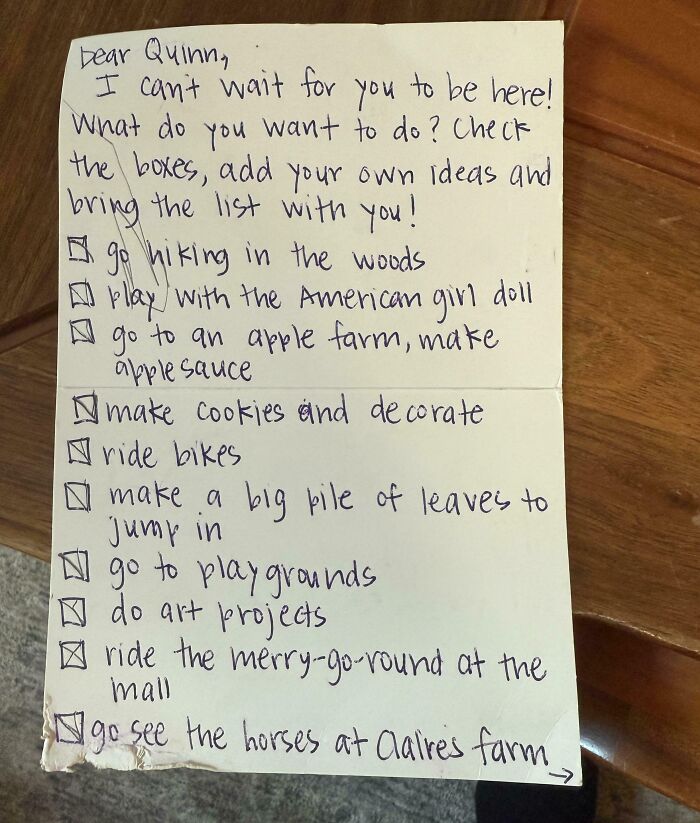 Dear Quinn,
I can't wait for you to be here!
What do you want to do? Check
the boxes, add your own ideas and
bring the list with you!
☒ go hiking in the woods
☒ play with the American girl doll
☒ go to an apple farm, make
applesauce
☒ make cookies and decorate
☒ ride bikes
☒ make a big pile of leaves to
jump in
☒ go to playgrounds
☒ do art projects
☒ ride the merry-go-round at the
mall
☒ go see the horses at Claire's farm
→